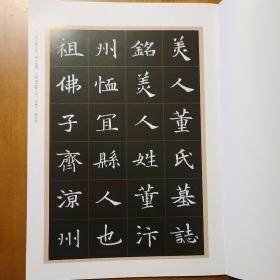 美人董氏墓誌
銘美人姓董汴
州恤宜縣人也
祖佛子齊涼州